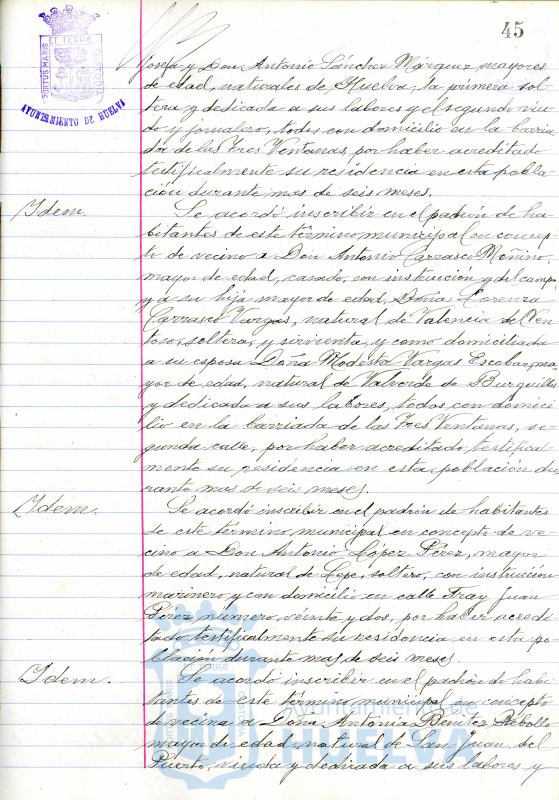 45
PORTUS MARIS ET TERRÆ CUSTODIA
AYUNTAMIENTO DE HUELVA
Josefa y Don Antonio Sánchez Márquez mayores
de edad, naturales de Huelva, la primera sol-
tera y dedicada a sus labores y el segundo viu-
do y jornalero, todos con domicilio en la barria-
da de las Tres Ventanas, por haber acreditado
testificalmente su residencia en esta pobla-
ción durante mas de seis meses.
Idem.
Se acordó inscribir en el padrón de ha-
bitantes de este término municipal en concep-
to de vecino a Don Antonio Carrasco Moñino,
mayor de edad, casado, con instrucción y del campo
y a su hija mayor de edad, Doña Lorenza
Carrasco Vargas, natural de Valencia del Ven-
toso, soltera, y sirvienta, y como domiciliada
a su esposa Doña Modesta Vargas Escobar, ma-
yor de edad, natural de Valverde de Burguillos
y dedicada a sus labores, todos con domici-
lio en la barriada de las Tres Ventanas, se-
gunda calle, por haber acreditado testifical-
mente su residencia en esta población du-
rante mas de seis meses.
Idem.
Se acordó inscribir en el padrón de habitantes
de este término municipal en concepto de ve-
cino a Don Antonio López Pérez, mayor
de edad, natural de Lepe, soltero, con instrucción
marinero y con domicilio en calle Fray Juan
Pérez, número veinte y dos, por haber acredi-
tado testificalmente su residencia en esta po-
blación durante mas de seis meses.
Idem.
Se acordó inscribir en el padrón de habi-
tantes de este término municipal en concepto
de vecina a Doña Antonia Benítez Rebollo
mayor de edad, natural de San Juan del
Puerto, viuda y dedicada a sus labores y
Ayuntamiento de
HUELVA